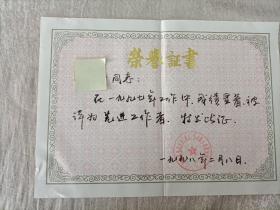 荣誉证书
同志：
在一九九七年工作中，成绩显著，被
评为先进工作者。特发此证。
一九九八年二月八日。